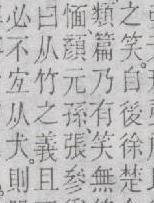 之笑。自後徐楚
類篇乃有笑無
愐、顏元孫、張參
曰从竹之義且
必不宐从犬。則